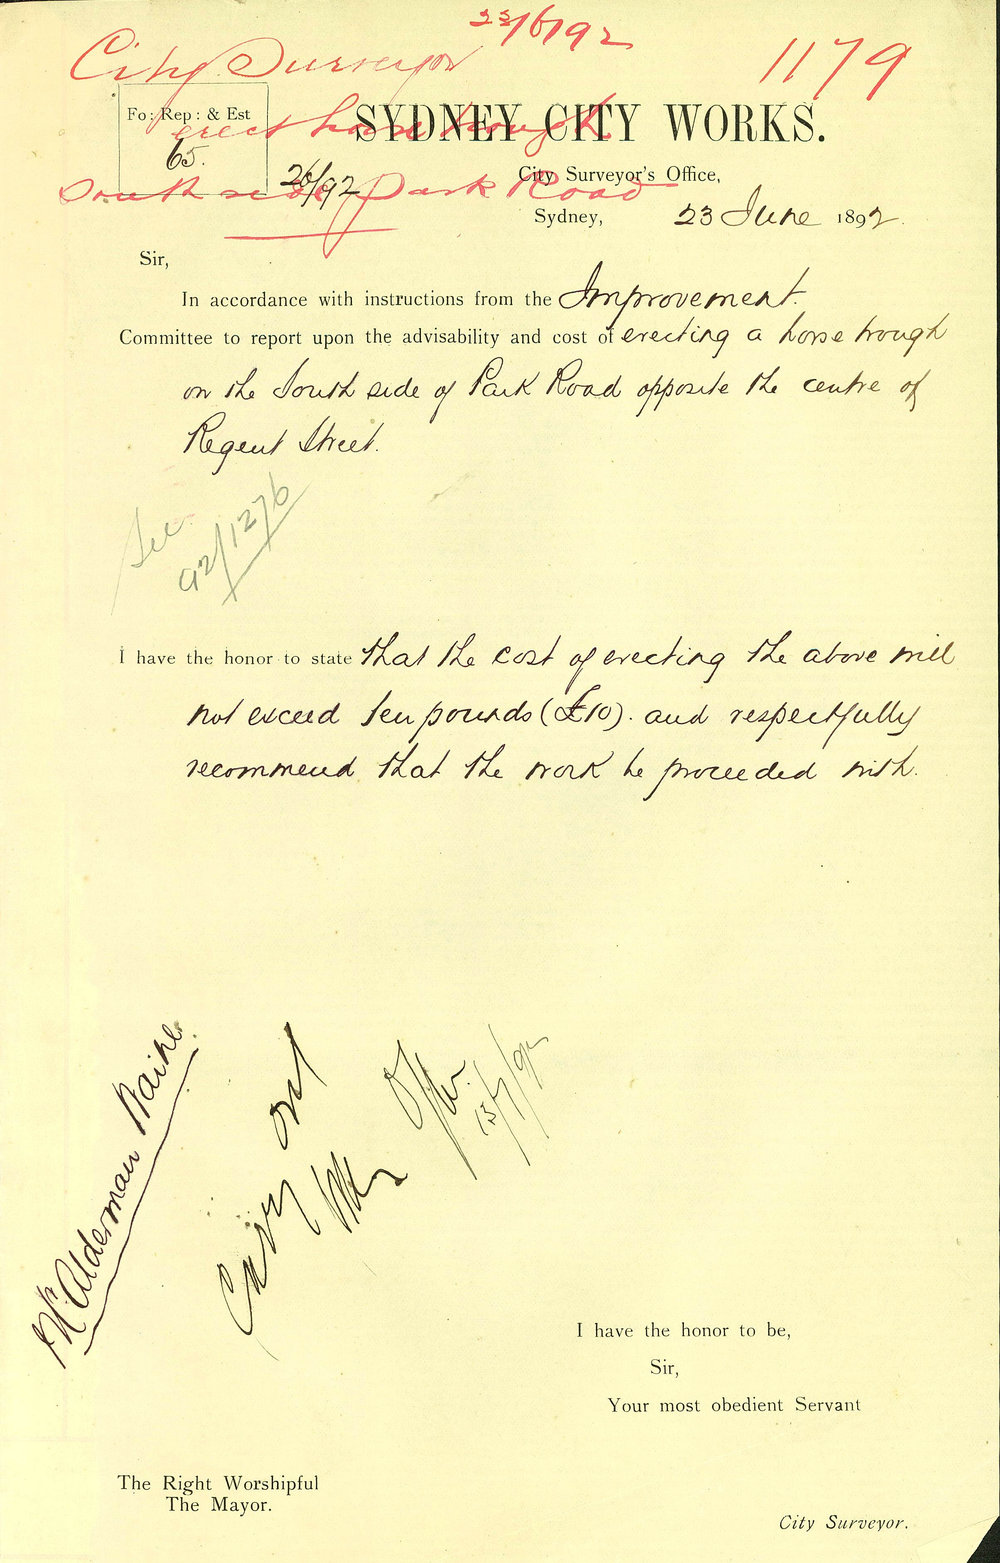 23/6/92
City Surveyor
1179
Fo: Rep: & Est
65.
26/92
erect horse trough
South side Park Road
SYDNEY CITY WORKS.
City Surveyor's Office,
Sydney, 23 June 1892.
Sir,
In accordance with instructions from the Improvement
Committee to report upon the advisability and cost of erecting a horse trough
on the South side of Park Road opposite the centre of
Regent Street.
See
92/1276
I have the honor to state that the cost of erecting the above will
not exceed ten pounds (£10). and respectfully
recommend that the work be proceeded with.
Mr. Alderman Waine
Carry out
13/7/92
I have the honor to be,
Sir,
Your most obedient Servant
The Right Worshipful
The Mayor.
City Surveyor.